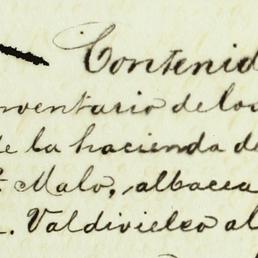 Contenid
nventario de los
de la hacienda de
Malo, albacea
. Valdivielso al